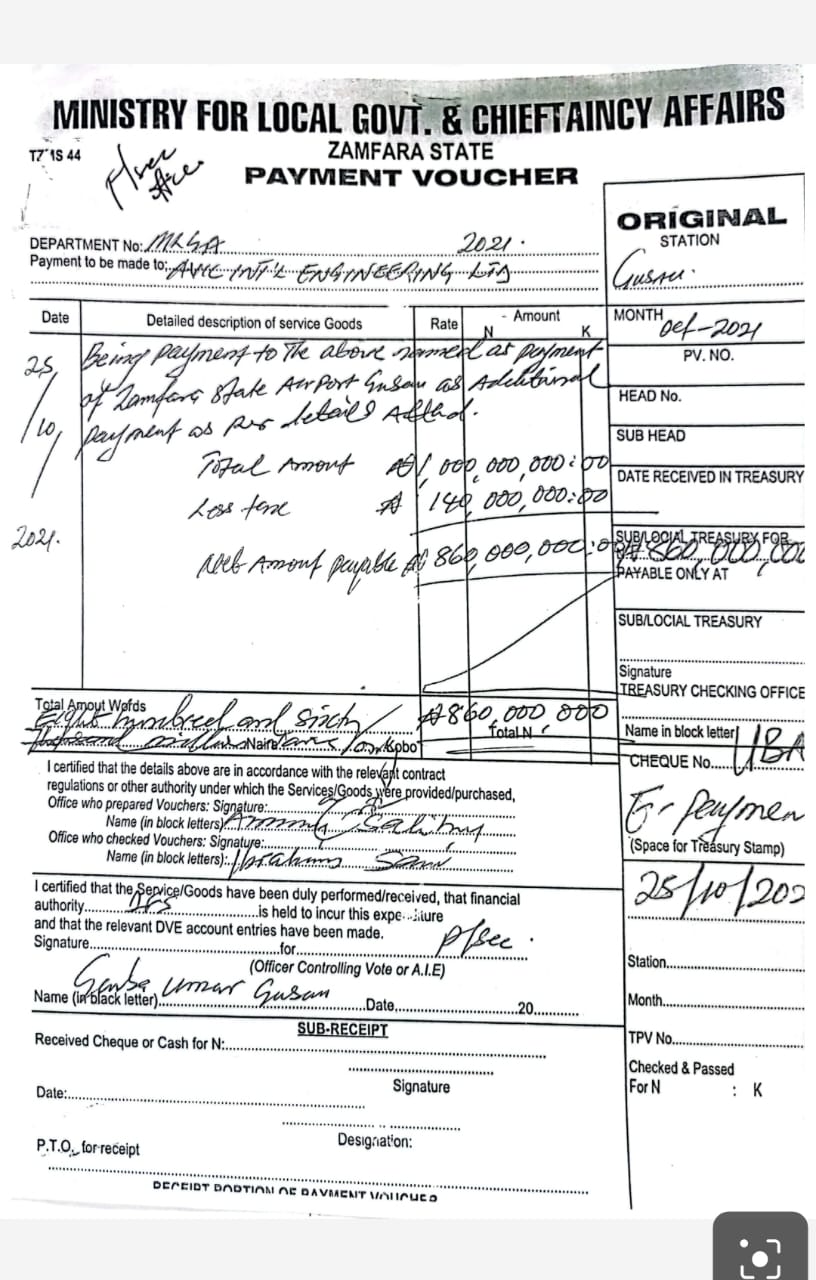 MINISTRY FOR LOCAL GOVT. & CHIEFTAINCY AFFAIRS
ZAMFARA STATE
PAYMENT VOUCHER
P/sec
ORIGINAL
STATION
Gusau.
DEPARTMENT No: MLGA 2021.
Payment to be made to: AVIC INT'L ENGINEERING LTD
Date Detailed description of service Goods Rate Amount
N K
MONTH Oct-2021
PV. NO.
HEAD No.
SUB HEAD
DATE RECEIVED IN TREASURY
25/10/2021.
Being payment to the above named as payment
of Zamfara State Airport Gusau as Additional
payment as per details Attad.
Total Amount ₦1,000,000,000:00
Less 140,000,000:00
Net Amount payable ₦860,000,000:0
SUB/LOCIAL TREASURY FOR
₦860,000,000
PAYABLE ONLY AT
SUB/LOCIAL TREASURY
Signature
TREASURY CHECKING OFFICE
Total Amout Words ₦860,000,000
Eight hundred and sixty Total N
Naira Kobo
Name in block letter
CHEQUE No. UBA
E-Paymen
(Space for Treasury Stamp)
25/10/202
I certified that the details above are in accordance with the relevant contract
regulations or other authority under which the Services/Goods were provided/purchased,
Office who prepared Vouchers: Signature:
Name (in block letters)
Office who checked Vouchers: Signature:
Name (in block letters): Ibrahim Sani
I certified that the Service/Goods have been duly performed/received, that financial
authority is held to incur this expe
and that the relevant DVE account entries have been made.
Signature for P/sec.
(Officer Controlling Vote or A.I.E)
Umar Gusau
Name (in black letter) Date, 20
Station
Month
TPV No.
Checked & Passed
For N : K
SUB-RECEIPT
Received Cheque or Cash for N:
Signature
Date:
Designation:
P.T.O, for receipt
RECEIPT PORTION OF PAYMENT VOUCHER